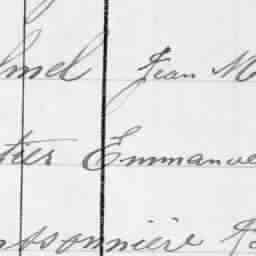 hmel Jean M
tier Emmanue
ssonnière